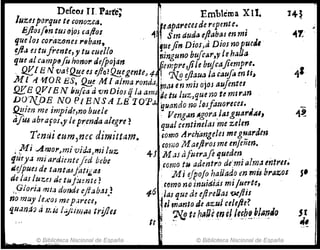 Defeos II. Parte,
luzes porque te conozca.
Ellos son tus ojos castos
que los corazones roban,
ella es tu frente, y tu cuello
que al campo su honor despojan
QVIEN va? Que es esto? Que gente,
MI AMOR ES, Que MI alma ronda.
QVE QVIEN busca à vn Dios q̃ la ama
DONDE NO PIENSA LE TOPA.
Quien me impide, no buele
à sus abraços, y le prenda alegre?
Tenui eum, nec dimittam.
Mi Amor, mi vida, mi luz
que ya mi ardiente sed bebe
despues de tantas faltas
de las luzes de tu fuente?
Gloria mia donde estabas?
no muy lexos me pareces,
quando à mis lastimas tristes
te
Emblema XII. 743
te apareces de repente.
Sin duda estabas en mi
que sin Dios, à Dios no puede
ninguno buscar, y le halla
siempre, si le busca siempre.
No estaua la causa en ti,
mas en mis ojos ausentes
de tu luz, que no te miran
quando no los fauoreces.
Vengan agora las guardas,
qual centinelas me zelen
como Archangeles me guarden
como Maestros me enseñen.
Mas à fuera se queden
como tu adentro de mi alma entres.
Mi esposo hallado en mis brazos
como no inuidiàs mi suerte,
las que de estrellas vestis
el manto de azul celeste?
No te hallè en el lecho blando
de
41
45
46
47
48
49
50
51
© Biblioteca Nacional de España
© Biblioteca Nacional de España